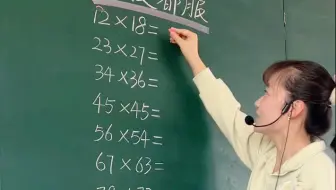 都服
12×18=
23×27=
34×36=
45×45=
56×54=
67×63=